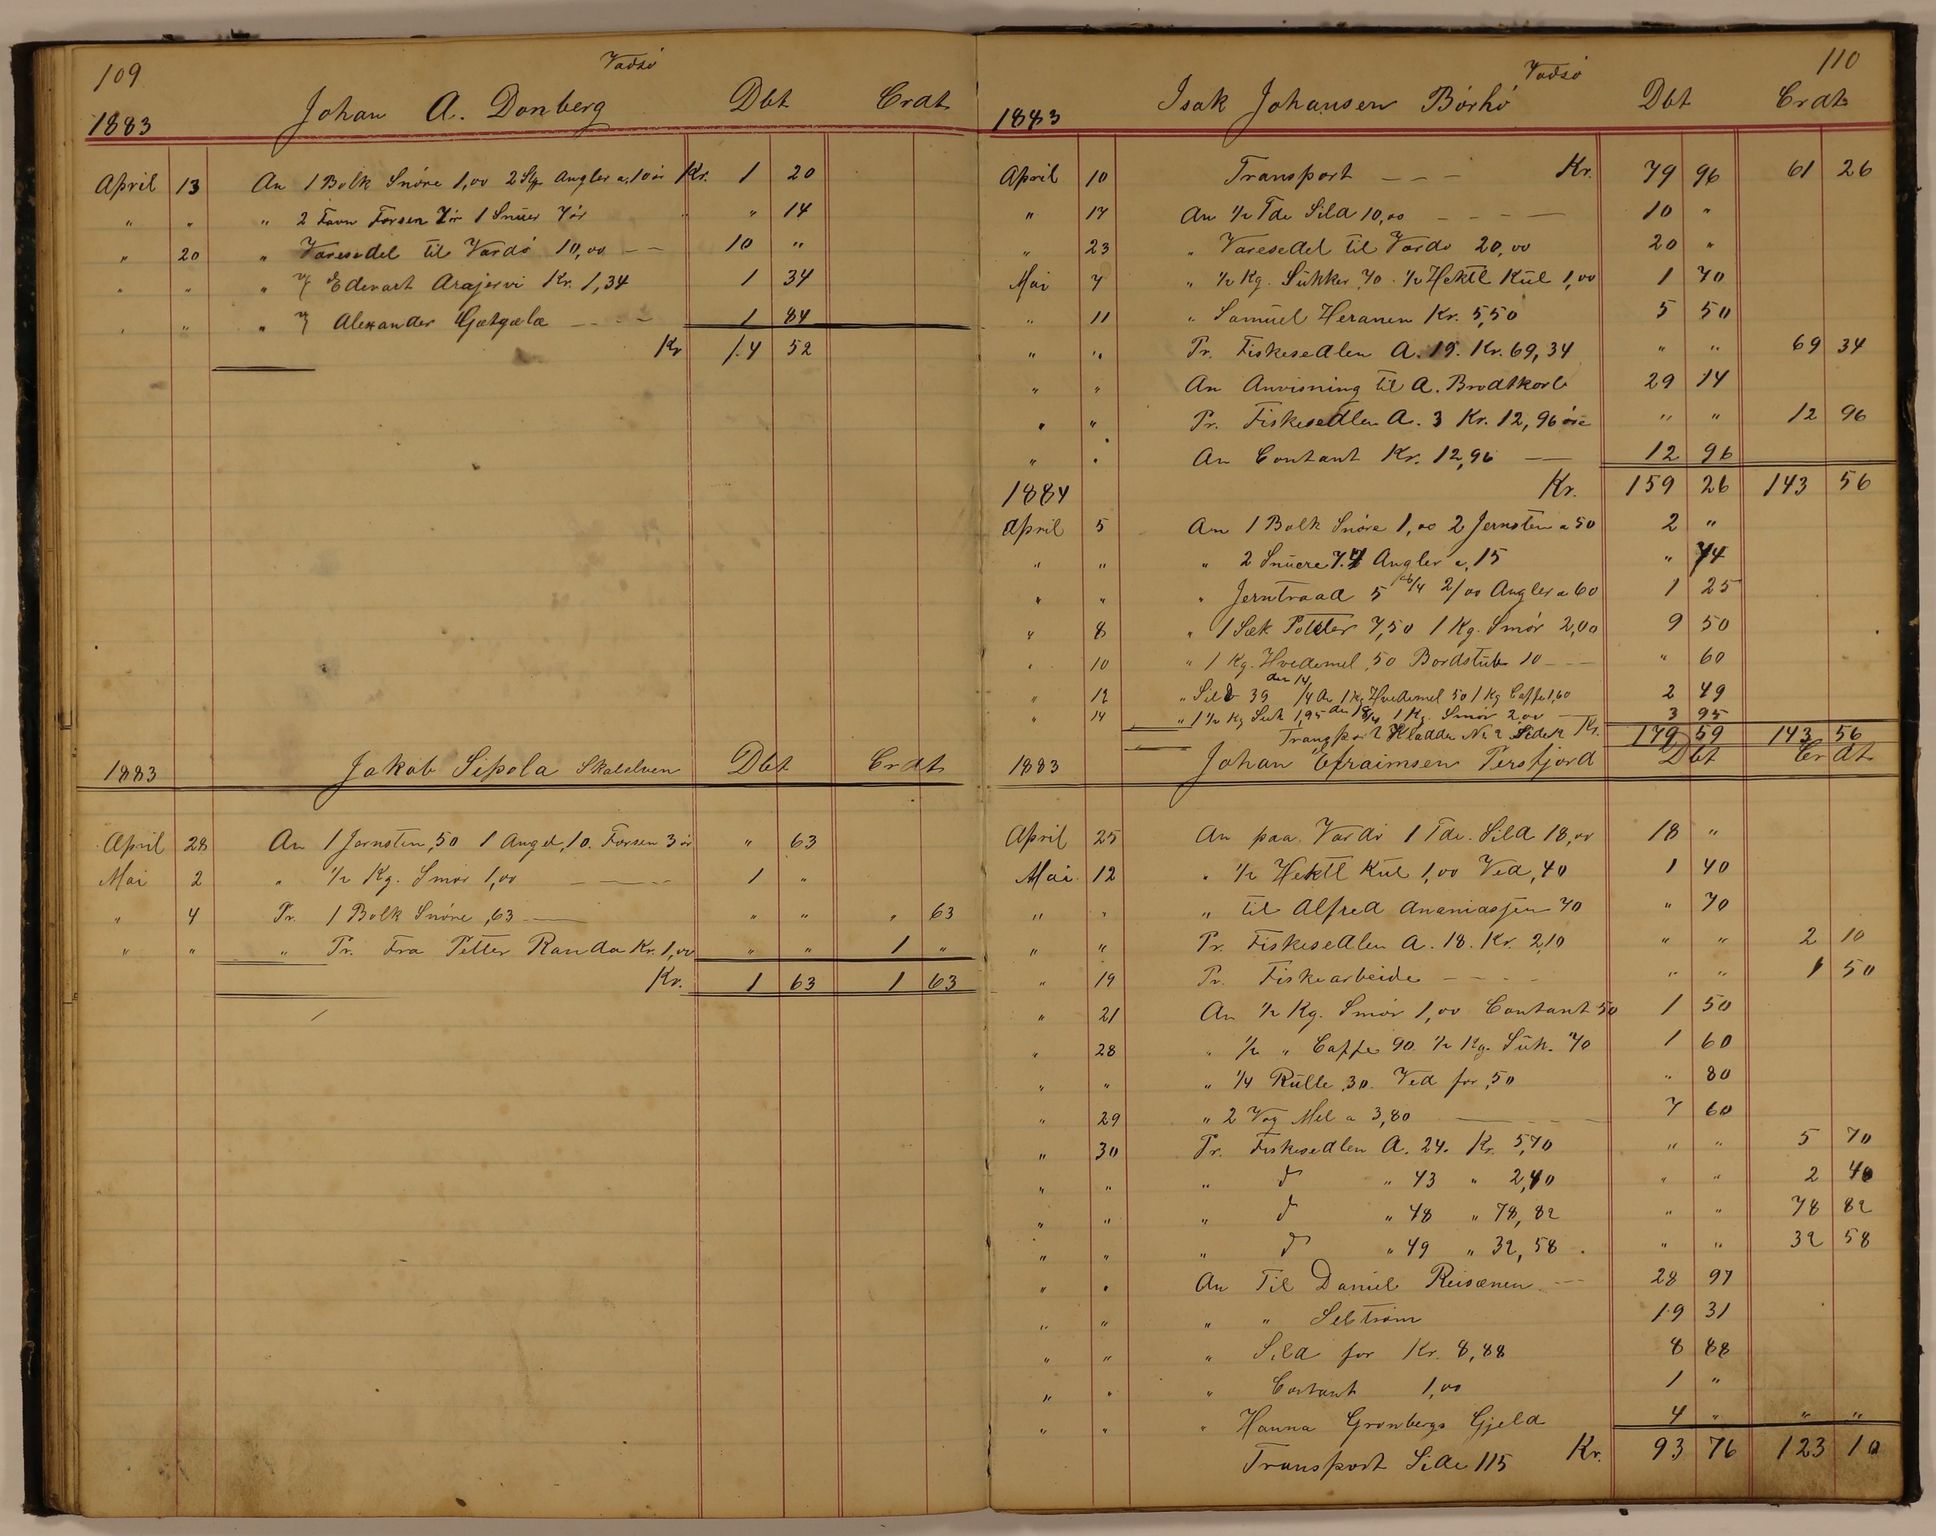 109
Vadsö
1883 Johan A. Donberg Dbt Crdt
April 13 An 1 Bolk Snöre 1,00 2 Stk Angler a, 10 ör Kr. 1 20
" " " 2 Favn Forsen 7 ör 1 Snuer 7 ör " " 14
" 20 " Varesedel til Vardö 10,00 — — 10 "
" " " Edevart Arajervi Kr. 1,34 1 34
" " " Alexander Gætgæla — — — 1 84
Kr 14 52
1883 Jakob Sipola Skalelven Dbt Crdt
April 28 An 1 Jernsten, 50 1 Angel, 10. Forsen 3 ör " 63
Mai 2 " 1/2 Kg. Smør 1,00 — — — 1 "
" 4 Pr. 1 Bolk Snöre ,63 — " " " 63
" " " Pr. Fra Petter Randa Kr. 1,00 " " 1 "
Kr. 1 63 1 63
110
Vadsö
1883 Isak Johansen Börhö Dbt Crdt
April 10 Transport — — — Kr. 79 96 61 26
" 17 An 1/2 Tde Sild 10,00 — — — — 10 "
" 23 " Varesedel til Vardö 20,00 20 "
Mai 7 " 1/2 Kg. Sukker ,70. 1/2 Hektl Kul 1,00 1 70
" 11 " Samuel Heranen Kr. 5,50 5 50
" " Pr. Fiskesedlen A. 19. Kr. 69,34 " " 69 34
" " An Anvisning til A. Brodtkorb 29 14
" " Pr. Fiskesedlen A. 3 Kr. 12,96 öre " " 12 96
" " An Contant Kr. 12,96 — 12 96
1884 Kr. 159 26 143 56
April 5 An 1 Bolk Snöre 1,00 2 Jernsten a 50 2 "
" " " 2 Snuere 7. 4 Angler a, 15 " 74
" " " Jerntraad 5 2/00 Angler a 60 1 25
" 8 " 1 Sæk Poteter 7,50 1 Kg. Smør 2,00 9 50
" 10 " 1 Kg. Hvedemel ,50 Bordstub 10 — — " 60
" 12 " Sild 39 den 14/4 An 1 kg Hvedemel 50 1 Kg Caffe 1,60 2 49
" 14 " 1 1/2 Kg Suk 1,95 den 18/4 1 Kg. Smør 2,00 — 3 95
Transport Kladde No 2 Side 2 Kr. 179 59 143 56
1883 Johan Efraimsen Persfjord Dbt Crdt
April 25 An paa Vardö 1 Tde. Sild 18,00 18 "
Mai 12 " 1/2 Hektl Kul 1,00 Ved ,40 1 40
" " " til Alfred Ananiassen 70 " 70
" " Pr. Fiskesedlen A. 18. Kr. 2,10 " " 2 10
" 19 Pr. Fiskearbeide — — — " " 1 50
" 21 An 1/2 Kg. Smør 1,00 Contant 50 1 50
" 28 " 1/2 " Caffe 90 1/2 Kg. Suk. 70 1 60
" " " 1/4 Rulle ,30. Ved for ,50 " 80
" 29 " 2 Vog Mel a 3,80 — 7 60
" 30 Pr. Fiskesedlen A. 24. Kr. 5,70 " " 5 70
" " " d " 43 " 2,40 " " 2 40
" " " d " 48 " 78,82 " " 78 82
" " " d " 49 " 32,58. " " 32 58
" " An Til Daniel Reisænen — 28 97
" " " " Selstrøm 19 31
" " " Sild for Kr. 8,88 8 88
" " " Contant 1,00 1 "
" " " Hanna Grønbergs Gjeld 4 " " "
Transport Side 115 Kr. 93 76 123 10